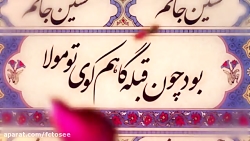 حسین جانم
حسین جانم
بود چون قبله گاهم کوی تو مولا
aparat.com/fetosee